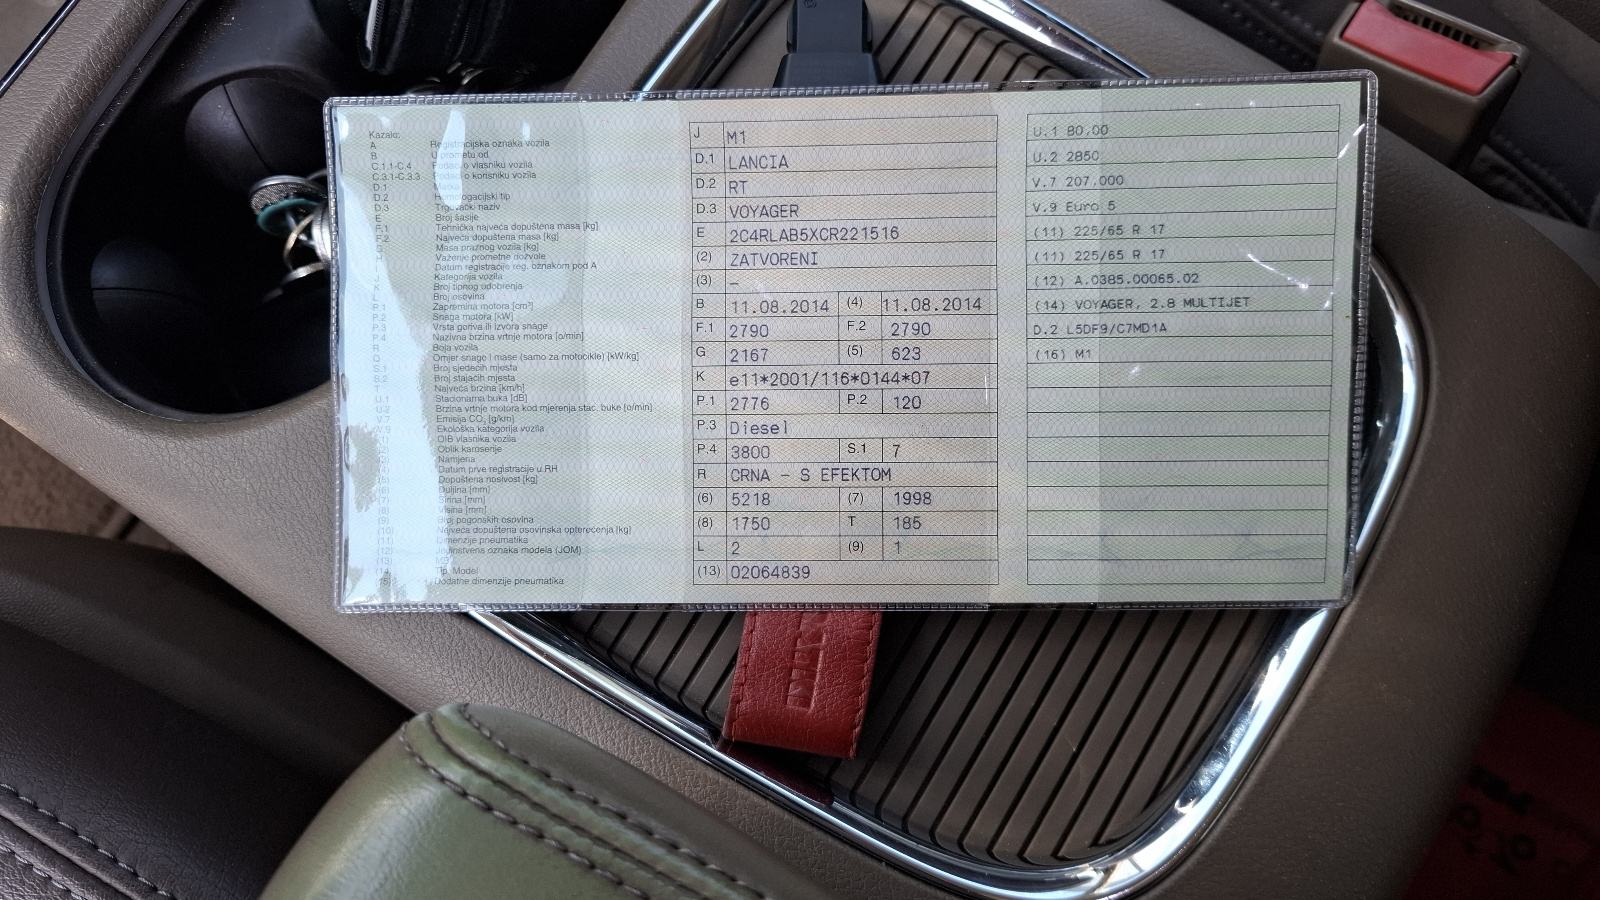 Kazalo:
A Registracijska oznaka vozila
B U prometu od
C.1.1-C.4 Podaci o vlasniku vozila
C.3.1-C.3.3 Podaci o korisniku vozila
D.1 Marka
D.2 Homologacijski tip
D.3 Trgovački naziv
E Broj šasije
F.1 Tehnička najveća dopuštena masa [kg]
F.2 Najveća dopuštena masa [kg]
G Masa praznog vozila [kg]
H Važenje prometne dozvole
I Datum registracije reg. oznakom pod A
J Kategorija vozila
K Broj tipnog odobrenja
L Broj osovina
P.1 Zapremina motora [cm³]
P.2 Snaga motora [kW]
P.3 Vrsta goriva ili izvora snage
P.4 Nazivna brzina vrtnje motora [o/min]
R Boja vozila
Q Omjer snage i mase (samo za motocikle) [kW/kg]
S.1 Broj sjedećih mjesta
S.2 Broj stajaćih mjesta
T Najveća brzina [km/h]
U.1 Stacionarna buka [dB]
U.2 Brzina vrtnje motora kod mjerenja stac. buke [o/min]
V.7 Emisija CO₂ [g/km]
V.9 Ekološka kategorija vozila
(1) OIB vlasnika vozila
(2) Oblik karoserije
(3) Namjena
(4) Datum prve registracije u RH
(5) Dopuštena nosivost [kg]
(6) Duljina [mm]
(7) Širina [mm]
(8) Visina [mm]
(9) Broj pogonskih osovina
(10) Najveća dopuštena osovinska opterećenja [kg]
(11) Dimenzije pneumatika
(12) Jedinstvena oznaka modela (JOM)
(13)
(14) Tip, Model
(15) Dodatne dimenzije pneumatika
J M1
D.1 LANCIA
D.2 RT
D.3 VOYAGER
E 2C4RLAB5XCR221516
(2) ZATVORENI
(3) –
B 11.08.2014 (4) 11.08.2014
F.1 2790 F.2 2790
G 2167 (5) 623
K e11*2001/116*0144*07
P.1 2776 P.2 120
P.3 Diesel
P.4 3800 S.1 7
R CRNA - S EFEKTOM
(6) 5218 (7) 1998
(8) 1750 T 185
L 2 (9) 1
(13) 02064839
U.1 80,00
U.2 2850
V.7 207.000
V.9 Euro 5
(11) 225/65 R 17
(11) 225/65 R 17
(12) A.0385.00065.02
(14) VOYAGER, 2.8 MULTIJET
D.2 L5DF9/C7MD1A
(16) M1